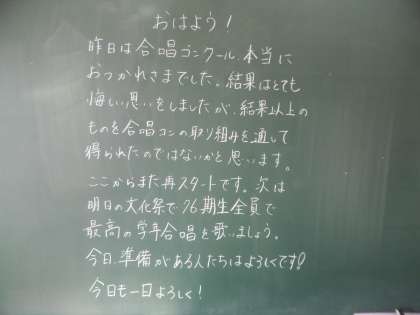 おはよう！
昨日は合唱コンクール、本当に
おつかれさまでした。結果はとても
悔しい思いをしましたが、結果以上の
ものを合唱コンの取り組みを通して
得られたのではないかと思います。
ここからまた再スタートです。次は
明日の文化祭で76期生全員で
最高の学年合唱を歌いましょう。
今日、準備がある人たちはよろしくです！
今日も一日よろしく！